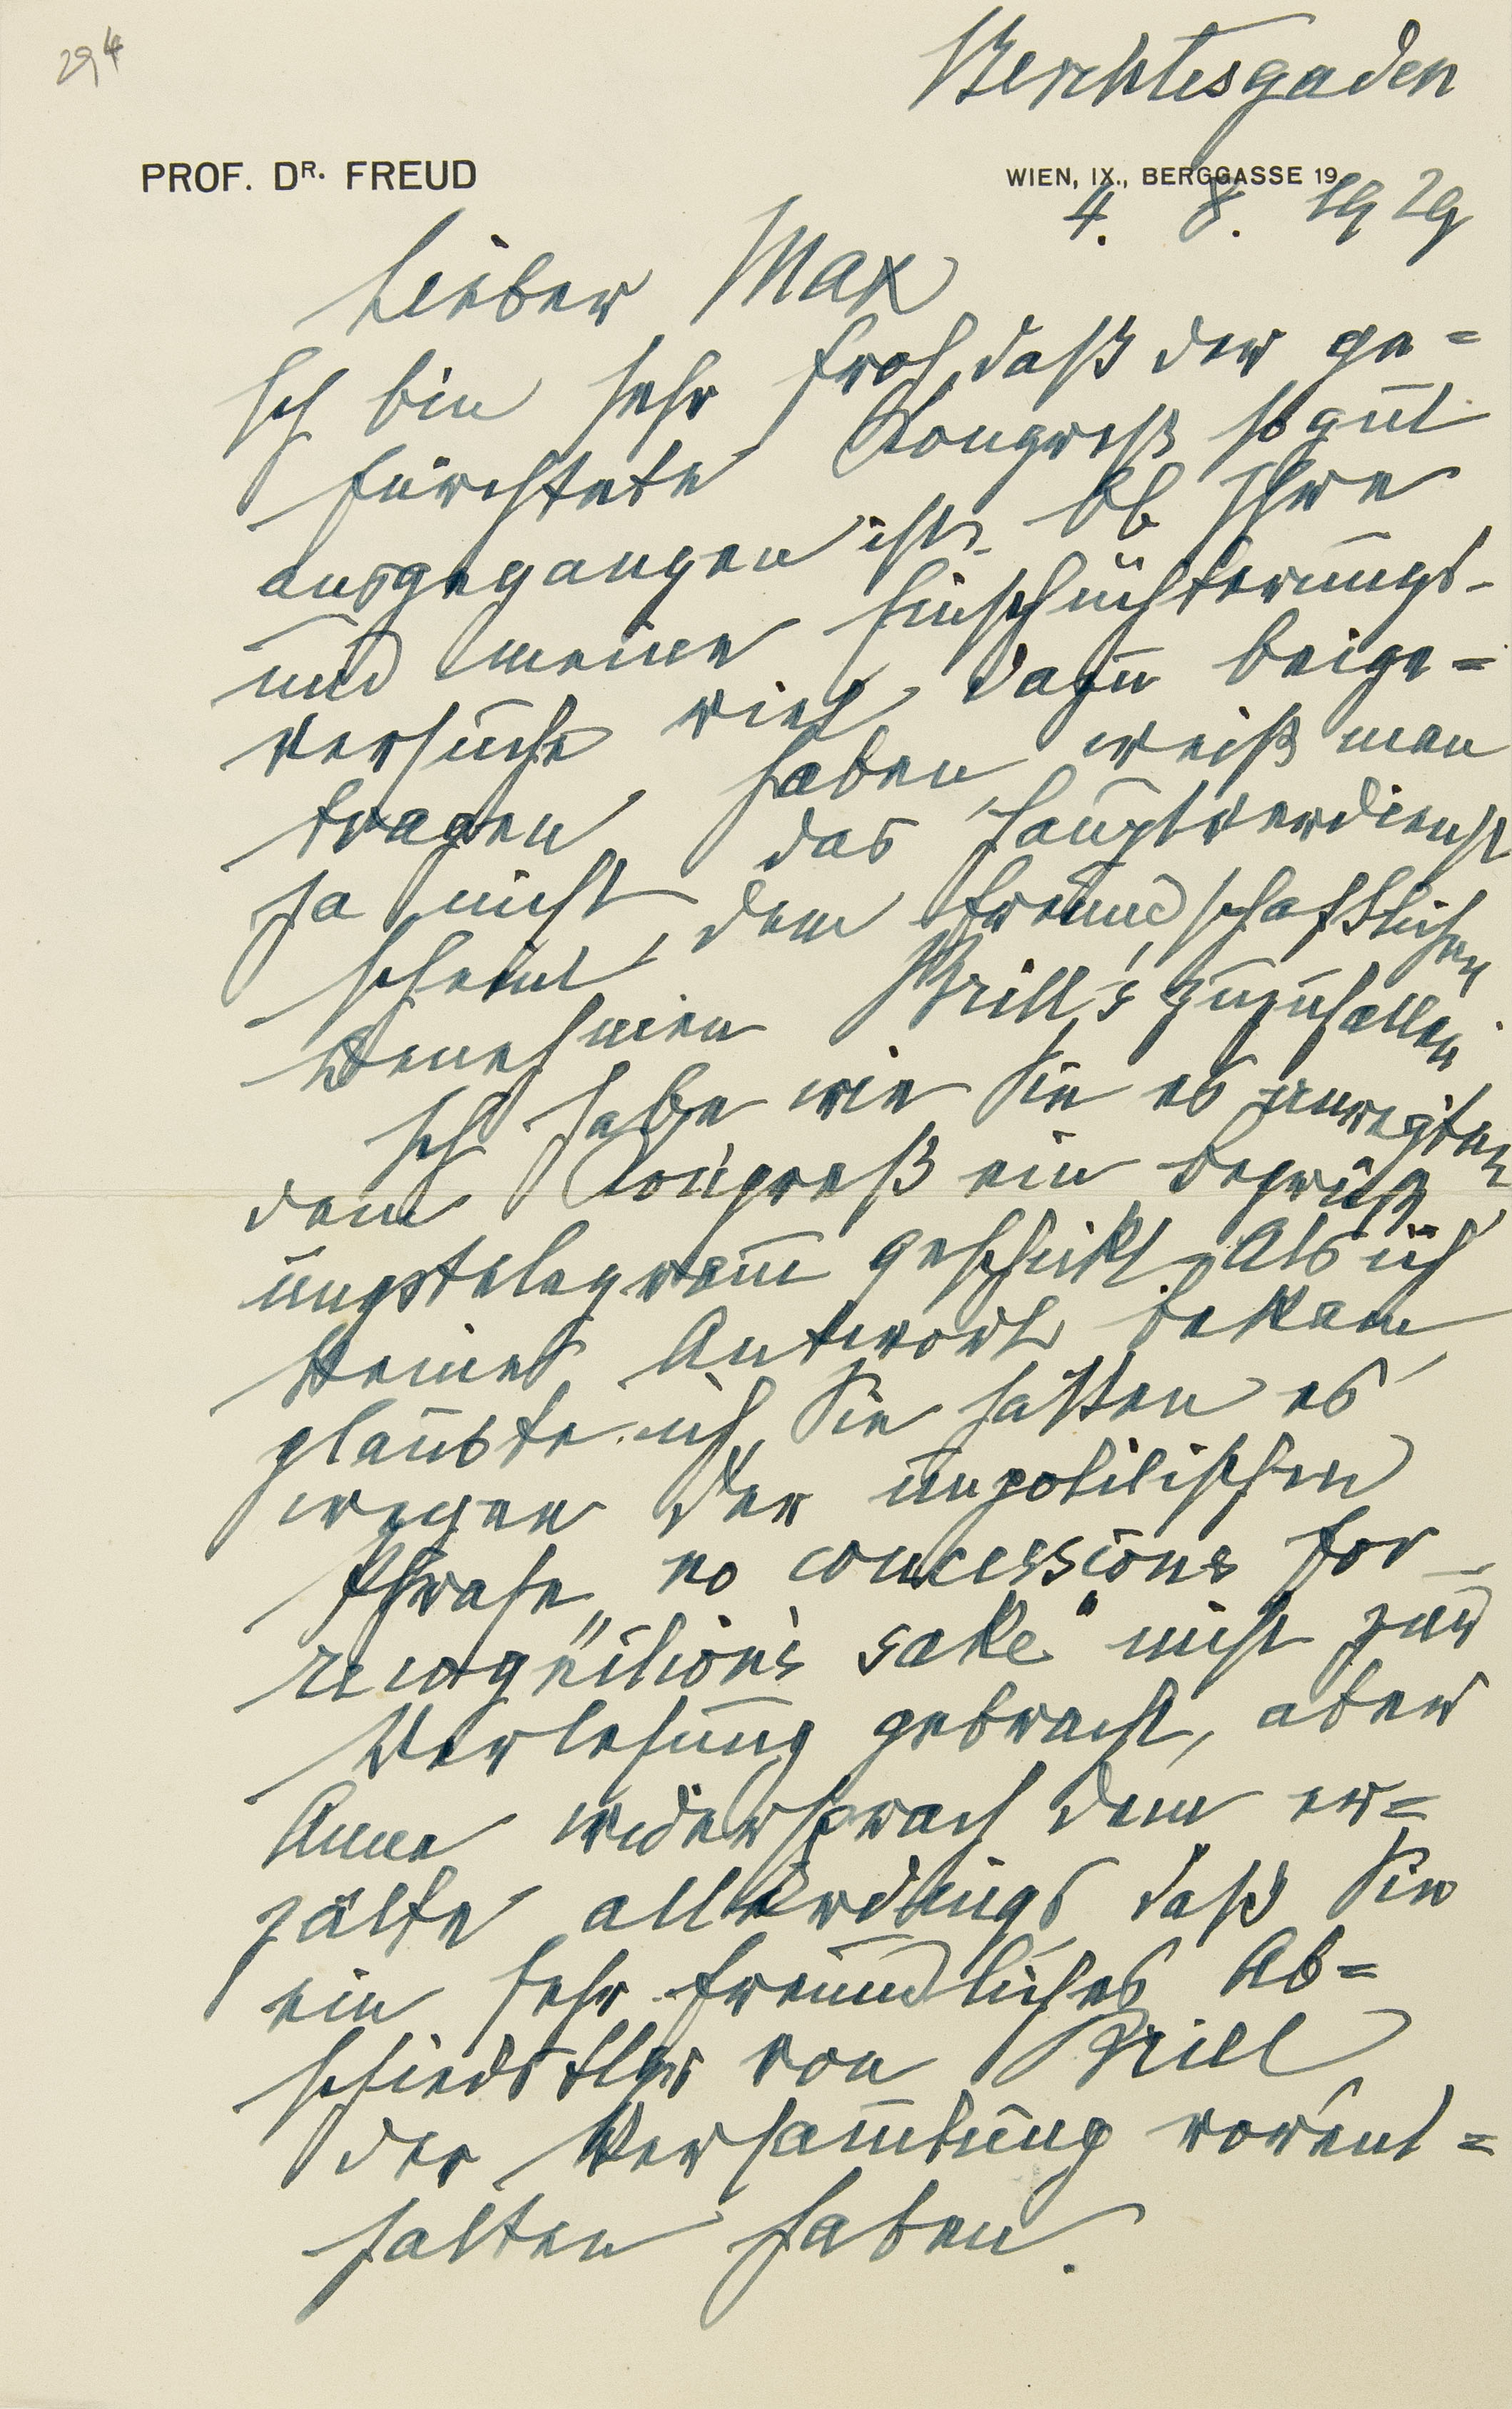 29 4
Berchtesgaden
PROF. DR. FREUD
WIEN, IX., BERGGASSE 19.
4. 8. 1929
Lieber Max
Ich bin sehr froh, daß der ge=
fürchtete Kongreß so gut
ausgegangen ist. Ob Ihre
und meine Einschüchterungs-
versuche viel dazu beige=
tragen haben, weiß man
ja nicht, das Hauptverdienst
scheint dem freundschaftlichen
Benehmen Brill's zuzufallen.
Ich habe wie Sie es anregten
dem Kongreß ein Begrüß
ungstelegramm geschickt. Als ich
keine Antwort bekam,
glaubte ich, Sie hätten es
wegen der unpolitischen
Phrase „no concessions for
recognition's sake" nicht zur
Verlesung gebracht, aber
Anna widersprach dem er=
zälte allerdings daß Sie
ein sehr freundliches Ab=
schiedstlgr von Brill
der Versammlung vorent=
halten haben.